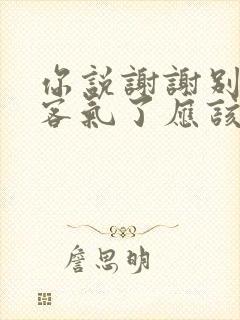 你説謝謝別
客氣了應該
詹思明